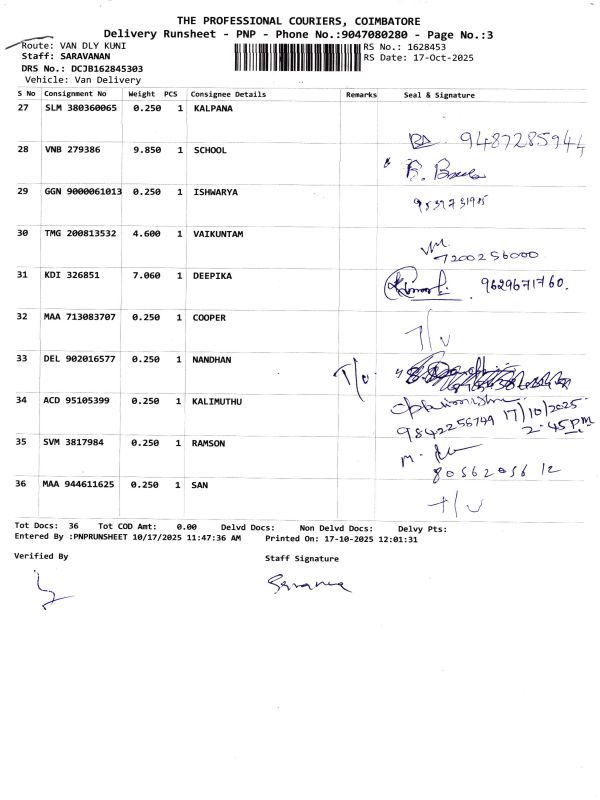 THE PROFESSIONAL COURIERS, COIMBATORE
Delivery Runsheet - PNP - Phone No.:9047080280 - Page No.:3
Route: VAN DLY KUNI
RS No.: 1628453
Staff: SARAVANAN
RS Date: 17-Oct-2025
DRS No.: DCJB162845303
Vehicle: Van Delivery
S No Consignment No Weight PCS Consignee Details Remarks Seal & Signature
27 SLM 380360065 0.250 1 KALPANA
9487285944
28 VNB 279386 9.850 1 SCHOOL
29 GGN 9000061013 0.250 1 ISHWARYA
30 TMG 200813532 4.600 1 VAIKUNTAM
7200256000
31 KDI 326851 7.060 1 DEEPIKA
9629671760.
32 MAA 713083707 0.250 1 COOPER
T/U
33 DEL 902016577 0.250 1 NANDHAN
T/U
34 ACD 95105399 0.250 1 KALIMUTHU
9842256749 17/10/2025
2.45PM
35 SVM 3817984 0.250 1 RAMSON
8056205612
36 MAA 944611625 0.250 1 SAN
T/U
Tot Docs: 36 Tot COD Amt: 0.00 Delvd Docs: Non Delvd Docs: Delvy Pts:
Entered By :PNPRUNSHEET 10/17/2025 11:47:36 AM Printed On: 17-10-2025 12:01:31
Verified By Staff Signature